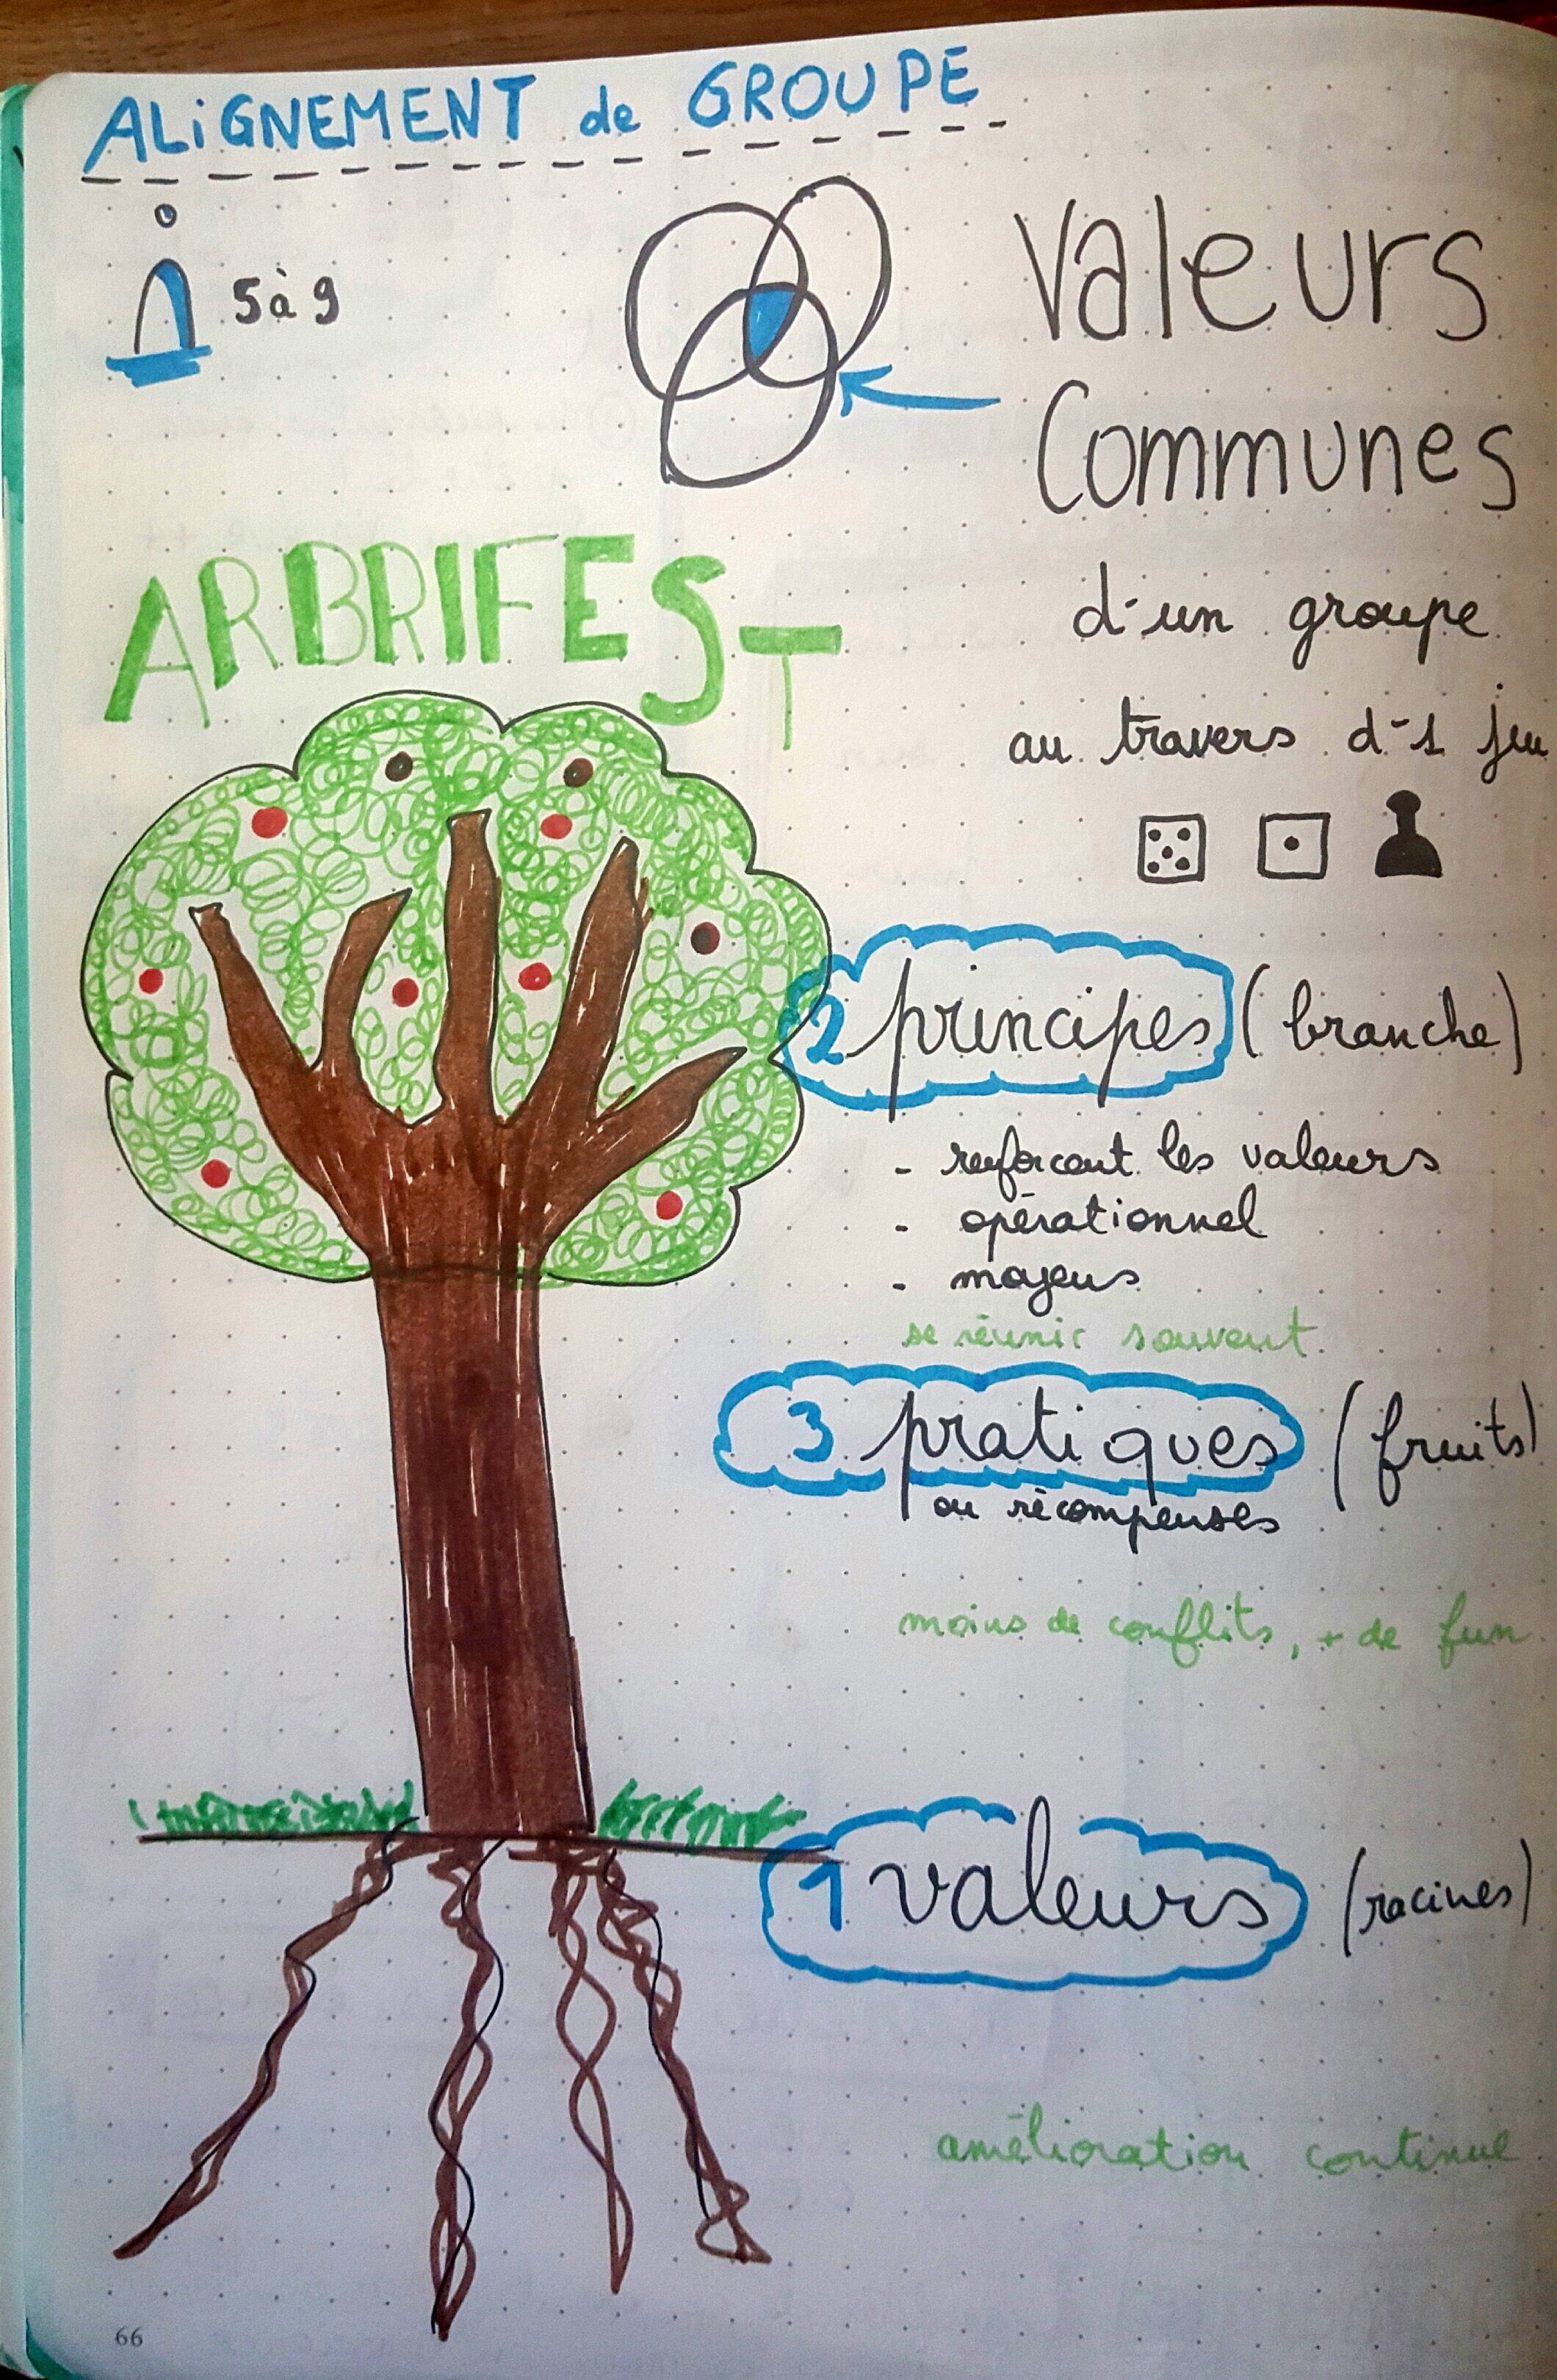 ALiGNEMENT de GROUPE
5 à 9
Valeurs
Communes
d'un groupe
au travers d'1 jeu
ARBRIFEST
2 principes (branche)
- renforcent les valeurs
- opérationnel
- moyens
se réunir souvent.
3 pratiques (fruits)
ou récompenses
moins de conflits, + de fun.
1 valeurs (racines)
amélioration continue
66